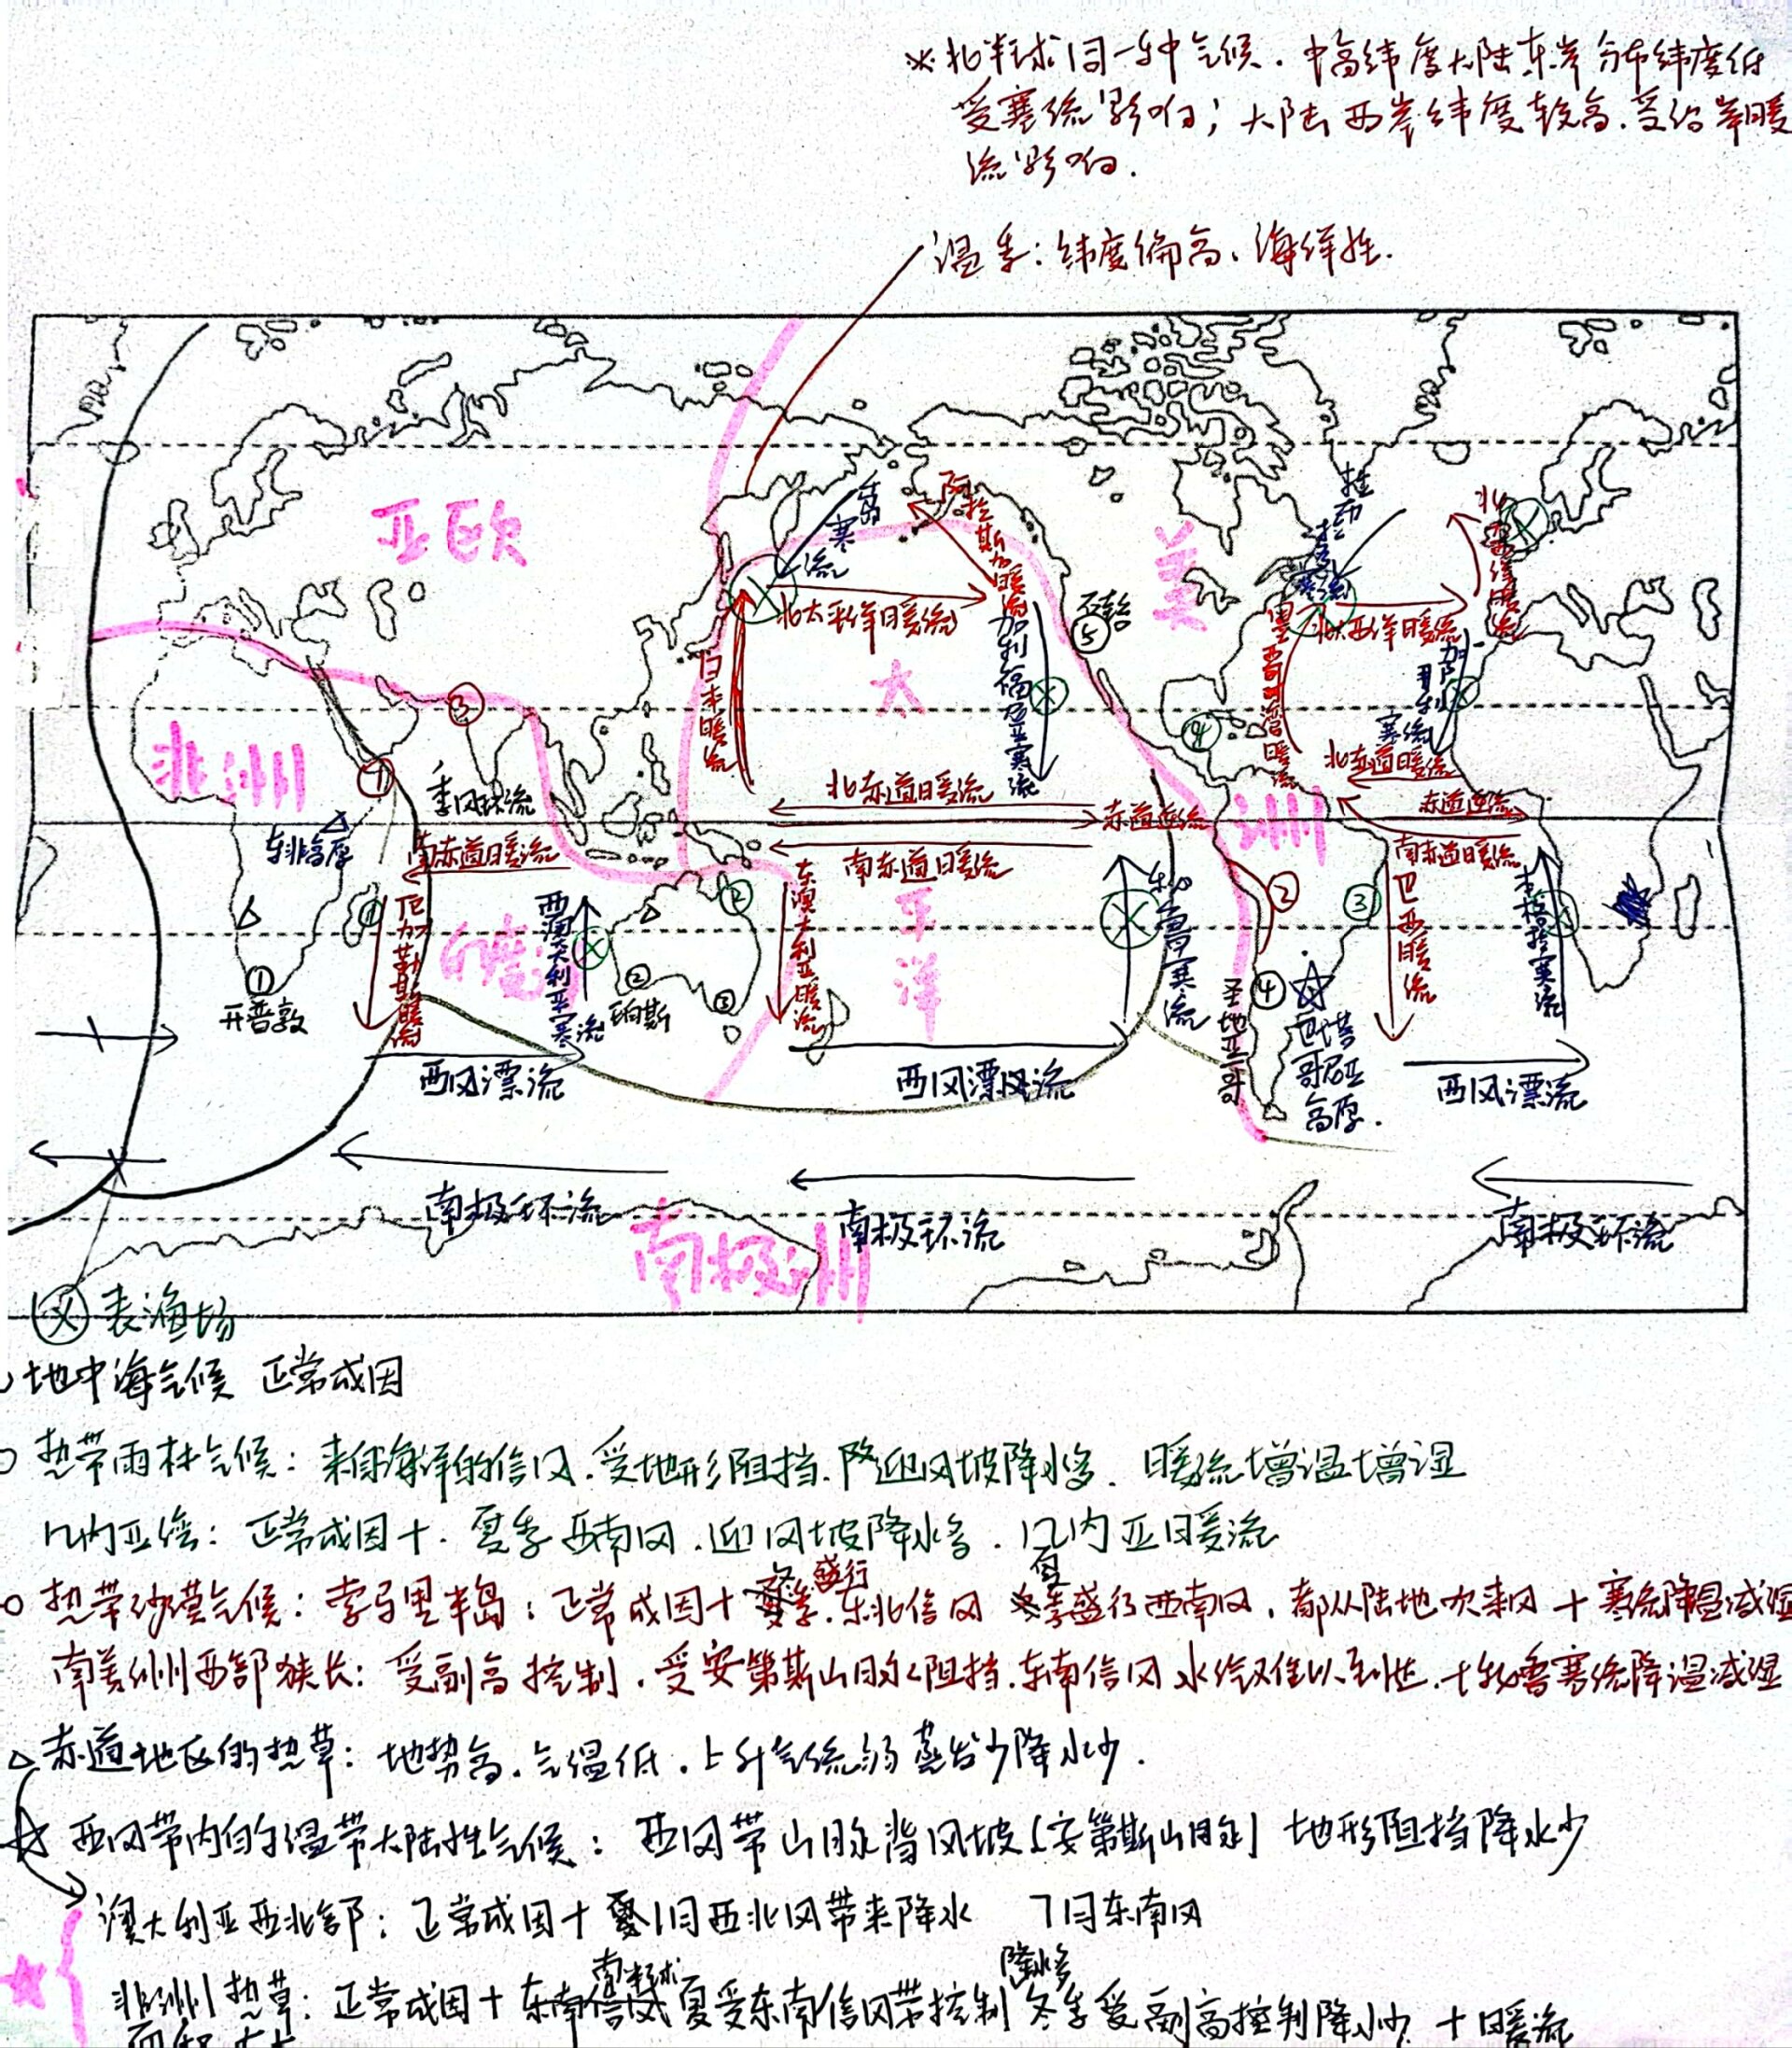 ※北半球同一种气候.中高纬度大陆东岸分布纬度低
受寒流影响;大陆西岸纬度较高.受沿岸暖
流影响.
温季:纬度偏高、海洋性.
亚欧
千岛寒流
阿拉斯加暖流
美
拉布拉多寒流
北大西洋暖流
⑤
北太平洋暖流
加利福尼亚寒流
日本暖流
墨西哥湾暖流
北大西洋暖流
加那利寒流
太
③
④
非洲
①
季风环流
北赤道暖流
赤道逆流
北赤道暖流
赤道逆流
洲
东非高原
南赤道暖流
南赤道暖流
南赤道暖流
厄加勒斯暖流
西澳大利亚寒流
②
东澳大利亚暖流
平
洋
秘鲁寒流
②
③
巴西暖流
本格拉寒流
印度
①
开普敦
②
珀斯
③
④
圣地亚哥
巴塔
哥尼亚
高原.
西风漂流
西风漂流
西风漂流
南极环流
南极环流
南极环流
南极洲
Ⓧ表渔场
地中海气候 正常成因
○热带雨林气候:来自海洋的信风.受地形阻挡.迎风坡降水多. 暖流增温增湿
几内亚湾:正常成因+.夏季西南风.迎风坡降水多.几内亚暖流
○热带沙漠气候:索马里半岛:正常成因+冬季盛行东北信风 夏季盛行西南风,都从陆地吹来风+寒流降温减湿
南美洲西部狭长:受副高控制.受安第斯山脉阻挡.东南信风水汽难以到达.+秘鲁寒流降温减湿
△赤道地区的热草:地势高.气温低.上升气流弱蒸发少降水少.
☆西风带内的温带大陆性气候:西风带山脉背风坡[安第斯山脉] 地形阻挡降水少
澳大利亚西北部:正常成因+1月西北风带来降水 7月东南风
非洲热草:正常成因+东南信风 南半球夏受东南信风带控制降水多 冬季受副高控制降水少.+暖流